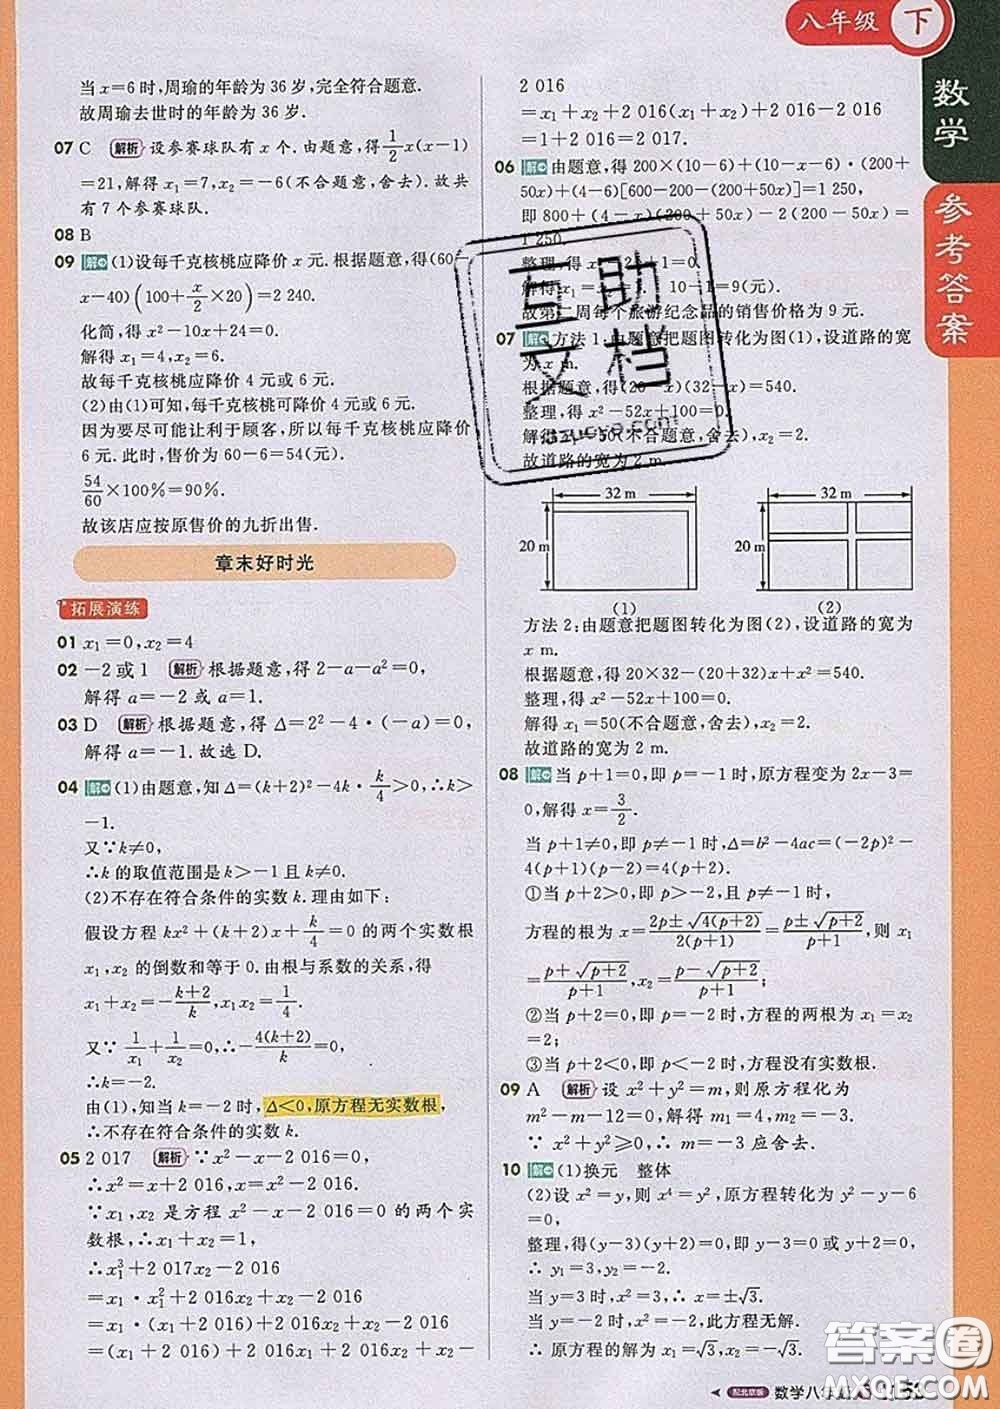 八年级 下
数学
参考答案
当 x=6 时,周瑜的年龄为 36 岁,完全符合题意.
故周瑜去世时的年龄为 36 岁.
07 C 解析 设参赛球队有 x 个.由题意,得 1/2 x(x-1)
=21,解得 x₁=7,x₂=-6(不合题意,舍去).故共
有 7 个参赛球队.
08 B
09 解 (1)设每千克核桃应降价 x 元.根据题意,得(60-
x-40)(100+x/2×20)=2 240.
化简,得 x²-10x+24=0.
解得 x₁=4,x₂=6.
故每千克核桃应降价 4 元或 6 元.
(2)由(1)可知,每千克核桃可降价 4 元或 6 元.
因为要尽可能让利于顾客,所以每千克核桃应降价
6 元.此时,售价为 60-6=54(元).
54/60×100%=90%.
故该店应按原售价的九折出售.
章末好时光
拓展演练
01 x₁=0,x₂=4
02 -2 或 1 解析 根据题意,得 2-a-a²=0,
解得 a=-2 或 a=1.
03 D 解析 根据题意,得 Δ=2²-4·(-a)=0,
解得 a=-1.故选 D.
04 解 (1)由题意,知 Δ=(k+2)²-4k·k/4>0,∴k>
-1.
又∵k≠0,
∴k 的取值范围是 k>-1 且 k≠0.
(2)不存在符合条件的实数 k.理由如下:
假设方程 kx²+(k+2)x+k/4=0 的两个实数根
x₁,x₂ 的倒数和等于 0.由根与系数的关系,得
x₁+x₂=-(k+2)/k,x₁x₂=1/4.
又∵1/x₁+1/x₂=0,∴-4(k+2)/k=0,
∴k=-2.
由(1),知当 k=-2 时,Δ<0,原方程无实数根,
∴不存在符合条件的实数 k.
05 2 017 解析 ∵x²-x-2 016=0,
∴x²=x+2 016,x=x²-2 016.
∵x₁,x₂ 是方程 x²-x-2 016=0 的两个实
数根,∴x₁+x₂=1,
∴x₁³+2 017x₂-2 016
=x₁·x₁²+2 016x₂+x₂-2 016
=x₁·(x₁+2 016)+2 016x₂+x₂-2 016
=(x₁+2 016)+2 016x₁+2 016x₂+x₂-
2 016
=x₁+x₂+2 016(x₁+x₂)+2 016-2 016
=1+2 016=2 017.
06 解 由题意,得 200×(10-6)+(10-x-6)·(200+
50x)+(4-6)[600-200-(200+50x)]=1 250,
即 800+(4-x)(200+50x)-2(200-50x)=
1 250.
x²-2x+1=0.
解得 x₁=x₂=1. 10-1=9(元).
故第二周每个旅游纪念品的销售价格为 9 元.
07 解 方法 1:由题意把题图转化为图(1),设道路的宽
为 x m.
根据题意,得(20-x)(32-x)=540.
整理,得 x²-52x+100=0.
解得 x₁=50(不合题意,舍去),x₂=2.
故道路的宽为 2 m.
32 m 32 m
20 m 20 m
(1) (2)
方法 2:由题意把题图转化为图(2),设道路的宽为
x m.
根据题意,得 20×32-(20+32)x+x²=540.
整理,得 x²-52x+100=0.
解得 x₁=50(不合题意,舍去),x₂=2.
故道路的宽为 2 m.
08 解 当 p+1=0,即 p=-1 时,原方程变为 2x-3=
0,解得 x=3/2.
当 p+1≠0,即 p≠-1 时,Δ=b²-4ac=(-2p)²-
4(p+1)(p-2)=4(p+2).
①当 p+2>0,即 p>-2,且 p≠-1 时,
方程的根为 x=(2p±√(4(p+2)))/(2(p+1))=(p±√(p+2))/(p+1),则 x₁
=(p+√(p+2))/(p+1),x₂=(p-√(p+2))/(p+1);
②当 p+2=0,即 p=-2 时,方程的两根为 x₁=x₂
=2;
③当 p+2<0,即 p<-2 时,方程没有实数根.
09 A 解析 设 x²+y²=m,则原方程化为
m²-m-12=0,解得 m₁=4,m₂=-3.
∵ x²+y²≥0,∴ m=-3 应舍去.
10 解 (1)换元 整体
(2)设 x²=y,则 x⁴=y²,原方程转化为 y²-y-6
=0,
整理,得(y-3)(y+2)=0,即 y-3=0 或 y+2=0,
∴ y₁=3,y₂=-2.
当 y=3 时,x²=3,∴ x=±√3.
当 y=-2 时,x²=-2,此方程无解.
∴ 原方程的解为 x₁=√3,x₂=-√3.
互助
文档
答案圈
配北京版
数学八年级